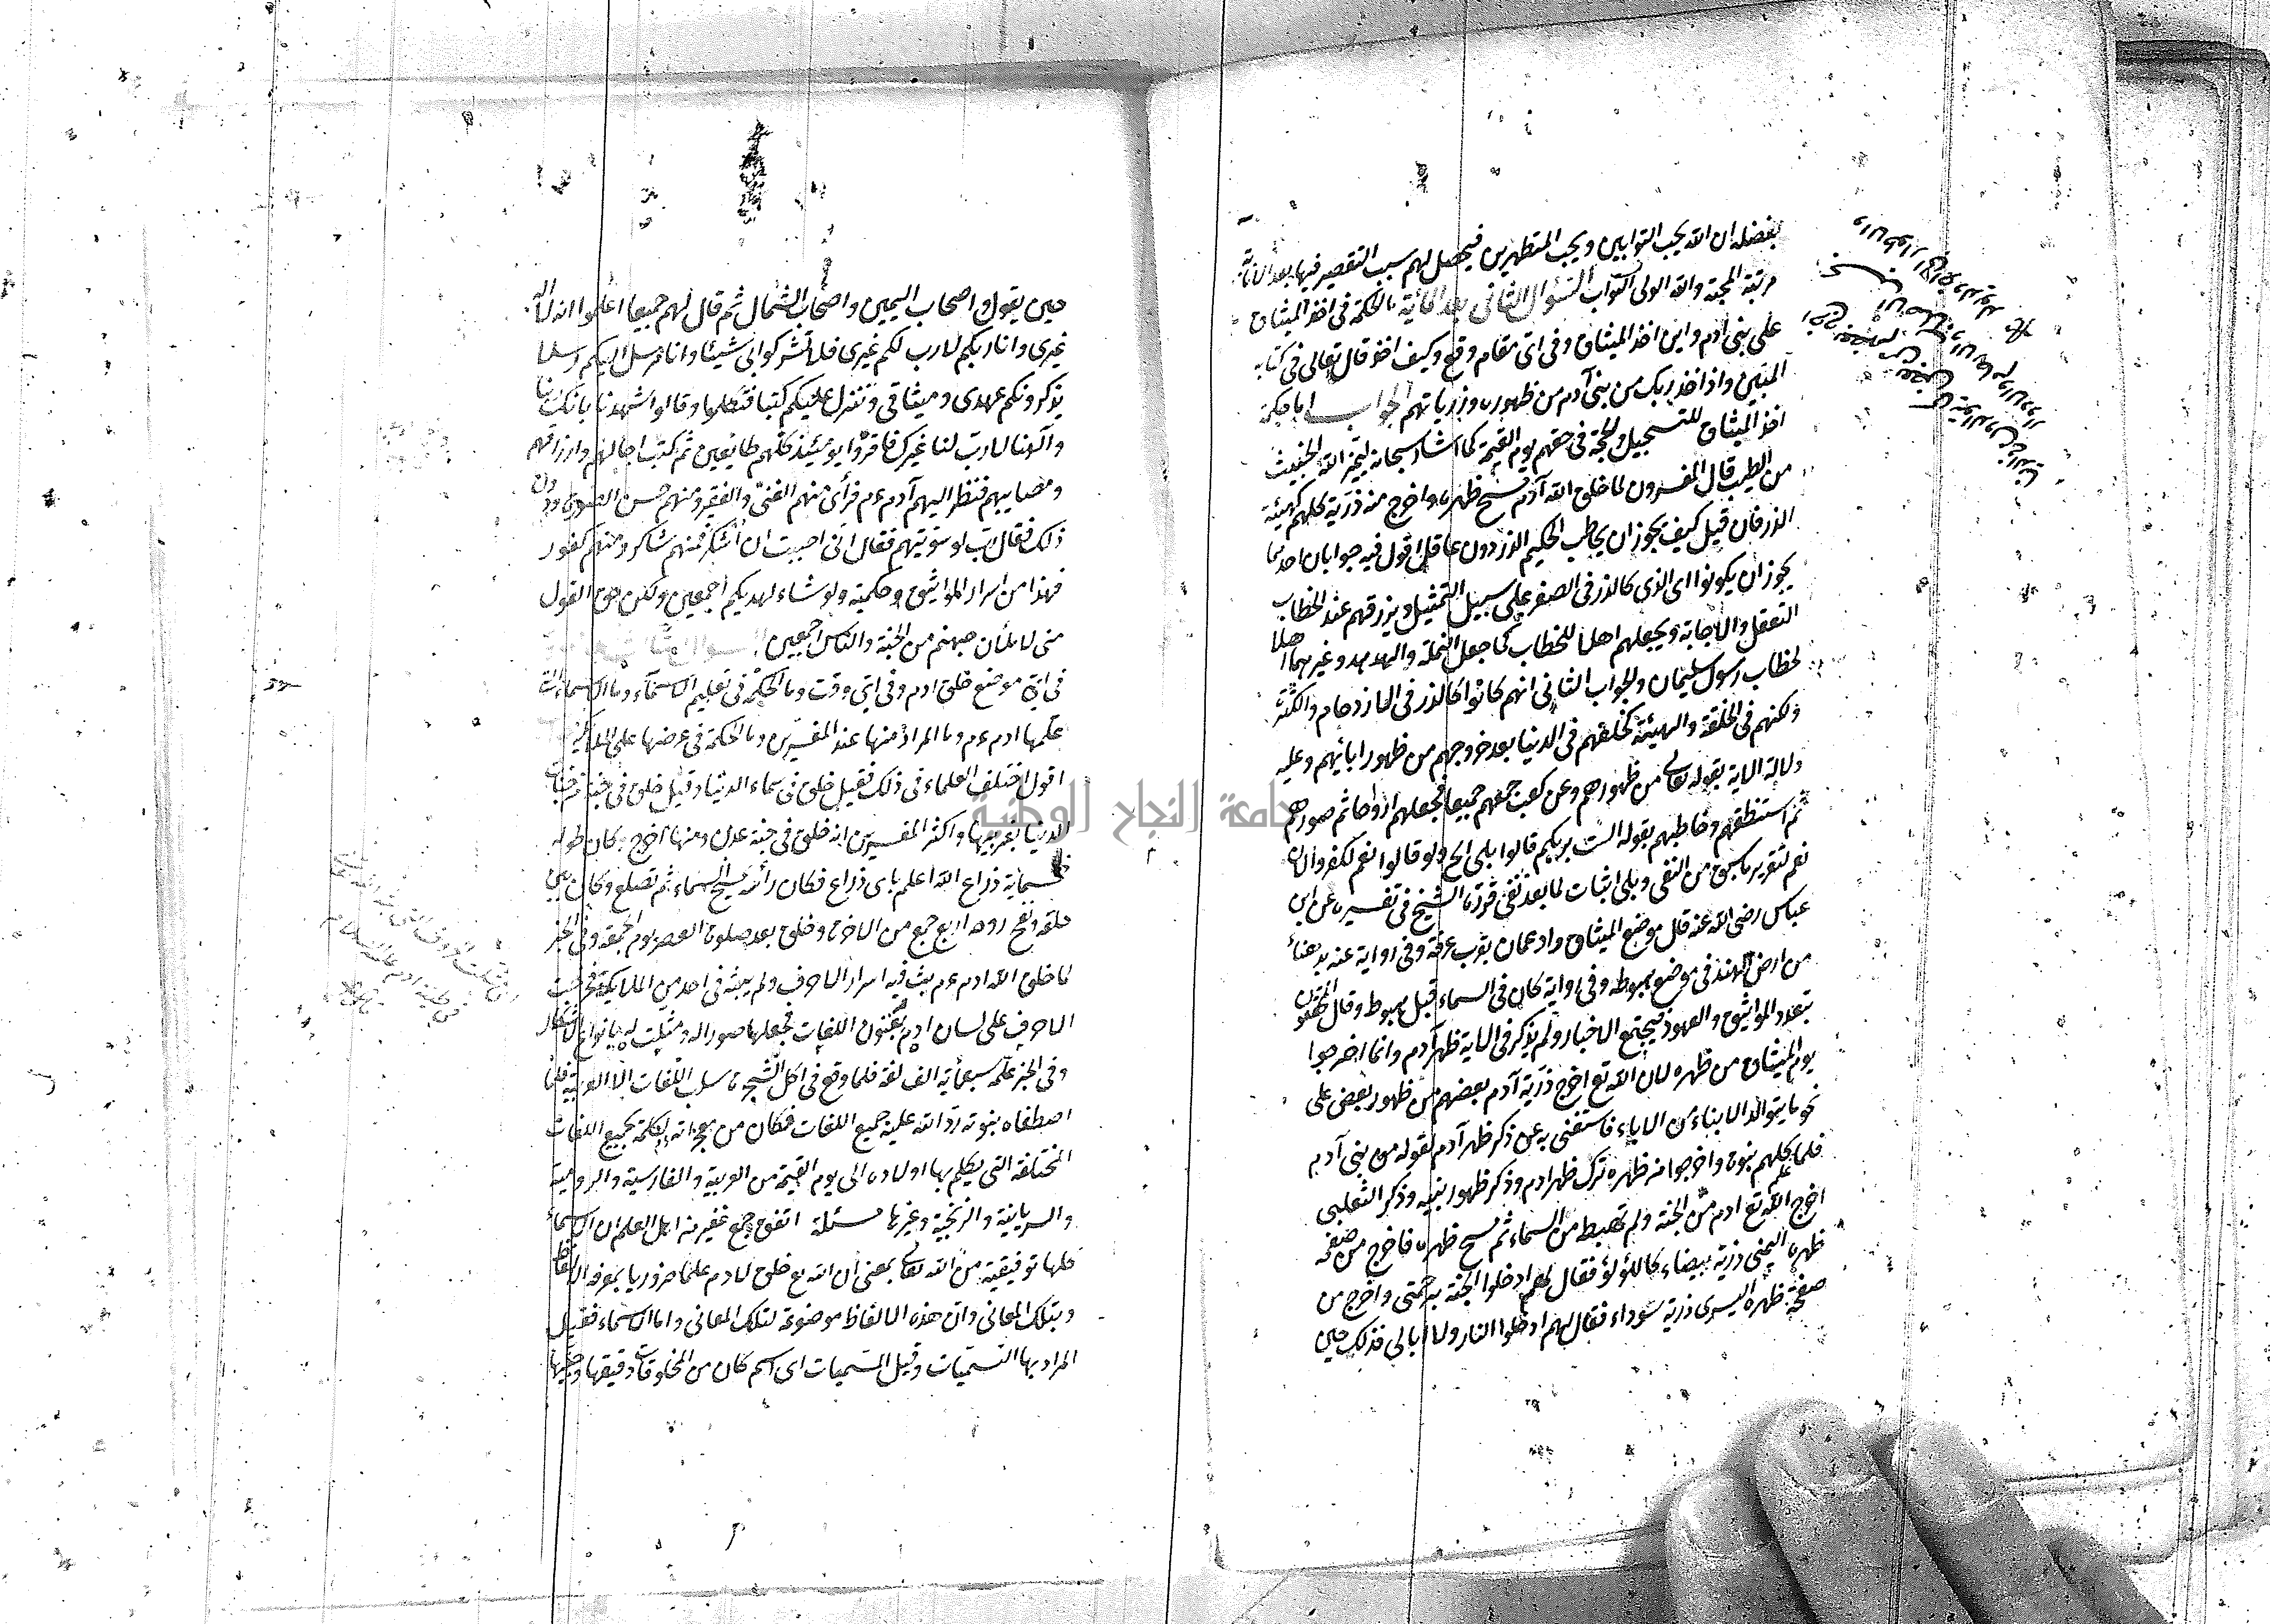 بفضله ان الله يحب التوابين ويحب المتطهرين فيحصل لهم بسبب التقصير فيها بعد الانابة
مرتبة المحبة والله الولى التواب السئوال الثانى بعد المائية ما الحكمة فى اخذ الميثاق
على بنى ادم واين اخذ الميثاق وفى اى مقام وقع وكيف اخذ قال تعالى فى كتابه
المبين واذ اخذ ربك من بنى آدم من ظهوره وذرياتهم الجواب اما حكمة
اخذ الميثاق للتسجيل والحجة فى حقهم يوم القيمة كما اشار سبحانه ليميز الله الخبيث
من الطيب قال المفسرون لما خلق الله آدم مسح ظهره واخرج منه ذرية كلهم كهيئة
الذر فان قيل كيف يجوز ان يخاطب الحكيم الذر دون عاقل اقول فيه جوابان احدهما
يجوز ان يكونوا اى الذى كالذر فى الصغر على سبيل التمثيل ويرزقهم عند الخطاب
التعقل والاجابة ويجعلهم اهلا للخطاب كما جعل النملة والهدهد وغيرهما اهلا
لخطاب رسول سليمان والجواب الثانى انهم كانوا كالذر فى الازدحام والكثرة
ولكنهم فى الخلقة والهيئة كخلقهم فى الدنيا بعد خروجهم من ظهور ابائهم وعليه
دلالة الاية بقوله تعالى من ظهورهم وعن كعب جمعهم جميعا فجعلهم ارواحا ثم صورهم
ثم استنطقهم وخاطبهم بقوله الست بربكم قالوا بلى الخ ولو قالوا نعم لكفروا لان
نعم لتقرير ما سبق من النفى وبلى اثبات لما بعد نفى قرره الشيخ فى تفسيره عن ابن
عباس رضى الله عنه قال موضع الميثاق واد عمان بقرب عرفة وفى رواية عنه بدهناء
من ارض الهند فى موضع هبوطه وفى رواية كان فى السماء قبل هبوط وقال المحققون
بتعدد المواثيق والعهود فيجتمع الاخبار ولم يذكر فى الاية ظهر آدم وانما اخرجوا
يوم الميثاق من ظهره لان الله تع اخرج ذرية آدم بعضهم من ظهور بعض على
نحو ما يتوالد الابناء من الاباء فاستغنى به عن ذكر ظهر آدم لقوله من بنى آدم
فلما علم كلهم بنوه واخرجوا من ظهره ترك ظهر ادم وذكر ظهور بنيه وذكر الثعلبى
اخرج الله تع ادم من الجنة ولم تهبط من السماء ثم مسح ظهره فاخرج من صفحة
ظهره اليمنى ذرية بيضاء كاللؤلؤ فقال لهم ادخلوا الجنة برحمتى واخرج من
صفحة ظهره اليسرى ذرية سوداء فقال لهم ادخلوا النار ولا ابالى فذلك حين
حين يقول واصحاب اليمين واصحاب الشمال ثم قال لهم جميعا اعلموا انه لا اله
غيرى وانا ربكم لا رب لكم غيرى فلا تشركوا بى شيئا وانا مرسل اليكم رسلا
يذكرونكم عهدى وميثاقى وننزل عليكم كتبا فتكلموا وقالوا شهدنا بانك ربنا
والهنا لا رب لنا غيرك فاقروا يومئيذ كلهم طايعين ثم كتب اجالهم وارزاقهم
ومصايبهم فنظر اليهم آدم عم فرأى منهم الغنى والفقير ومنهم حسن الصورة ودون
ذلك فقال رب لو سويتهم فقال انى احببت ان اشكر منهم شاكر ومنهم كفور
فهذا من اسرار المواثيق وحكمته ولو شاء لهديكم اجمعين ولكن حق القول
منى لاملأن جهنم من الجنة والناس اجمعين
فى اى موضع خلق ادم وفى اى وقت وما الحكمة فى تعليم الاسماء وما الاسماء التى
علمها ادم عم وما المراد منها عند المفسرين وما الحكمة فى عرضها على الملائكة
اقول اختلف العلماء فى ذلك فقيل خلق فى سماء الدنيا وقيل خلق فى جنة من جنات
الدنيا بغربيها واكثر المفسرين انه خلق فى جنة عدن ومنها اخرج وكان طوله
خسماية ذراع الله اعلم باى ذراع فكان رأسه يمسح السماء ثم تصلع وكان بين
خلقه ونفخ روحه اربع جمع من الاخرة وخلق بعد صلوة العصر يوم الجمعة وفى الخبر
لما خلق الله ادم عم بث فيه اسرار الاحرف ولم يبثه فى احد من الملايكة فخرجت
الاحرف على لسان ادم بفنون اللغات فجعلها صورا له ومثلت له بانواع الاشكال
وفى الخبر علمه سبعمأية الف لغة فلما وقع فى اكل الشجرة سلب اللغات الا العربية فلما
اصطفاه بنبوته رد الله عليه جميع اللغات فكان من معجزاته تكلمه بجميع اللغات
المختلفة التى يتكلم بها اولاده الى يوم القيمة من العربية والفارسية والرومية
والسريانية والزنجية وغيرها مسئلة اتفق جمع غفير من اهل العلم ان الاسماء
كلها توقيفية من الله تعالى بمعنى ان الله تع خلق لادم علما ضروريا بمعرفة الالفاظ
وبتلك المعانى وان هذه الالفاظ موضوعة لتلك المعانى واما الاسماء فقيل
المراد بها التسميات وقيل المسميات اى اسم كان من المخلوقات دقيقها وجليلها
جامعة النجاح الوطنية